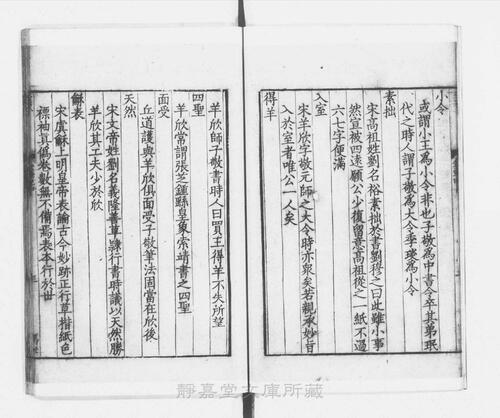 小令
或謂小王為小令非也子敬為中書令卒其弟珉
代之時人謂子敬為大令季琰為小令
素拙
宋高祖姓劉名裕素拙於書劉穆之曰此雖小事
然宣被四遠願公少復留意高祖從之一紙不過
六七字便滿
入室
宋羊欣字敬元師之大令時亦眾矣若親承妙旨
入於室者唯公一人矣
得羊
羊欣師子敬書時人曰買王得羊不失所望
四聖
羊欣常謂張芝鍾繇皇象索靖書之四聖
面受
丘道護與羊欣俱面受子敬筆法固當在欣後
天然
宋文帝姓劉名義隆善草隸行書時議以天然勝
羊欣其工夫少於欣
龢表
宋虞龢上明皇帝表論古今妙跡正行草楷紙色
標袖真偽卷數無不備焉表本行於世
靜嘉堂文庫所藏